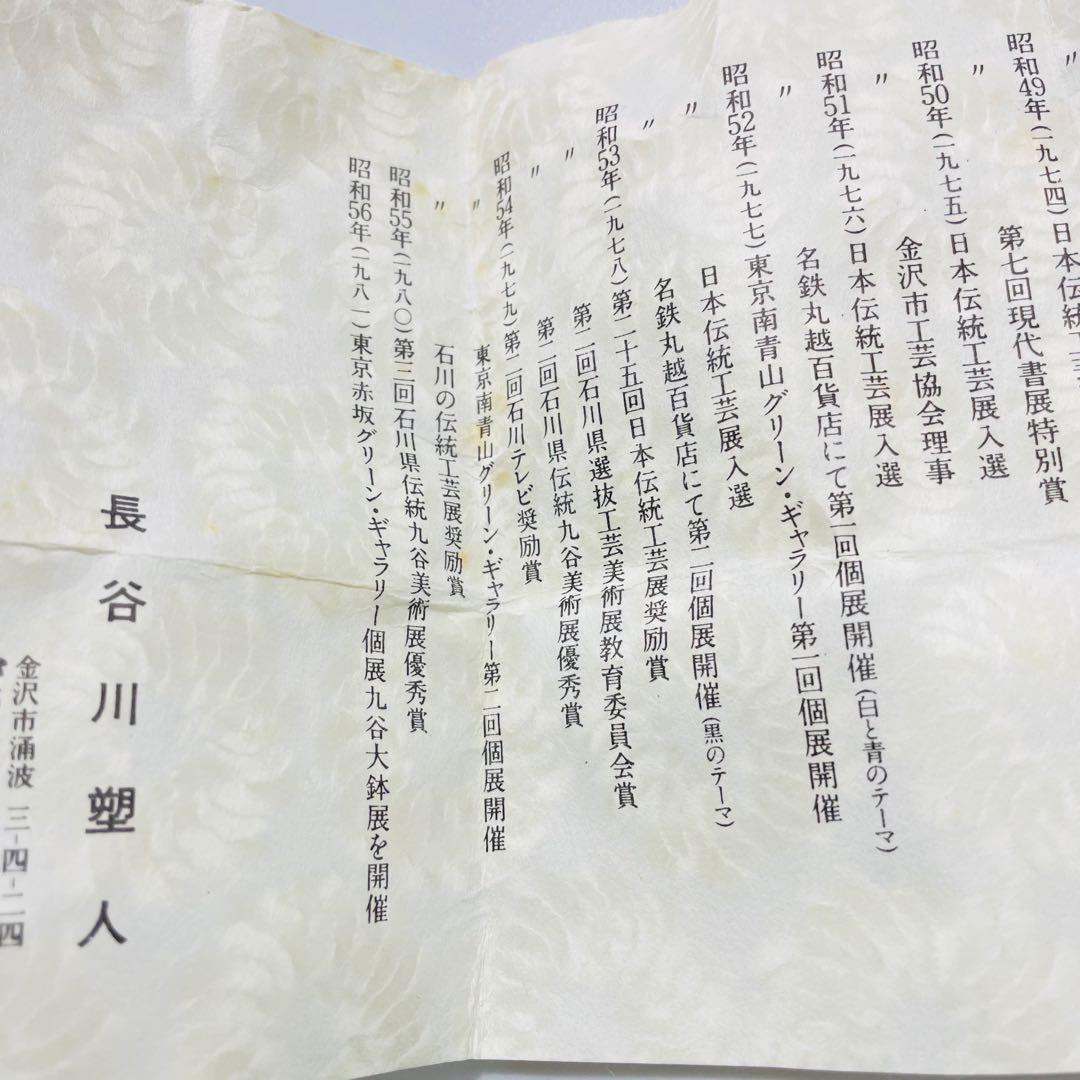 昭和49年(一九七四)日本伝統工芸
〃 第七回現代書展特別賞
昭和50年(一九七五)日本伝統工芸展入選
〃 金沢市工芸協会理事
昭和51年(一九七六)日本伝統工芸展入選
〃 名鉄丸越百貨店にて第一回個展開催(白と青のテーマ)
昭和52年(一九七七)東京南青山グリーン・ギャラリー第一回個展開催
〃 日本伝統工芸展入選
〃 名鉄丸越百貨店にて第二回個展開催(黒のテーマ)
昭和53年(一九七八)第二十五回日本伝統工芸展奨励賞
〃 第二回石川県選抜工芸美術展教育委員会賞
〃 第二回石川県伝統九谷美術展優秀賞
昭和54年(一九七九)第二回石川テレビ奨励賞
〃 東京南青山グリーン・ギャラリー第二回個展開催
〃 石川の伝統工芸展奨励賞
昭和55年(一九八〇)第三回石川県伝統九谷美術展優秀賞
昭和56年(一九八一)東京赤坂グリーン・ギャラリー個展九谷大鉢展を開催
長谷川塑人
金沢市涌波三-四-二四